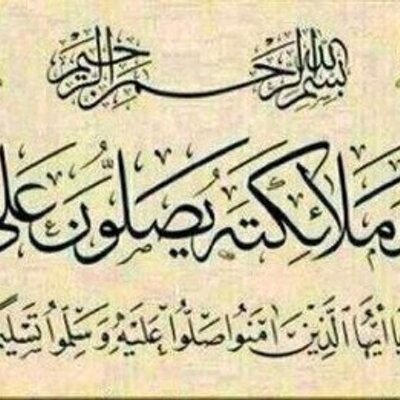 بسم الله الرحمن الرحيم
وملائكته يصلون على
يا أيها الذين ءامنوا صلوا عليه وسلموا تسليما